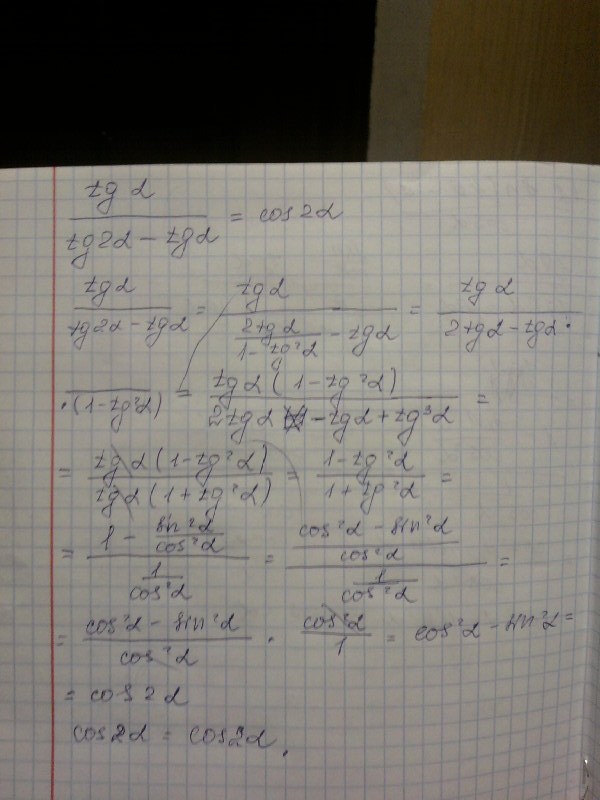 tg α / (tg2α - tgα) = cos2α
tgα / (tg2α - tgα) = tgα / (2tgα / (1-tg²α) - tgα) = tgα / (2tgα - tgα ·
·(1-tg²α) = tgα (1-tg²α) / (2tgα - tgα + tg³α) =
= tgα (1-tg²α) / (tgα (1+tg²α)) = (1-tg²α) / (1+tg²α) =
= (1 - sin²α / cos²α) / (1 / cos²α) = ((cos²α - sin²α) / cos²α) / (1 / cos²α) =
= (cos²α - sin²α) / cos²α · cos²α / 1 = cos²α - sin²α =
= cos 2α
cos2α = cos2α.